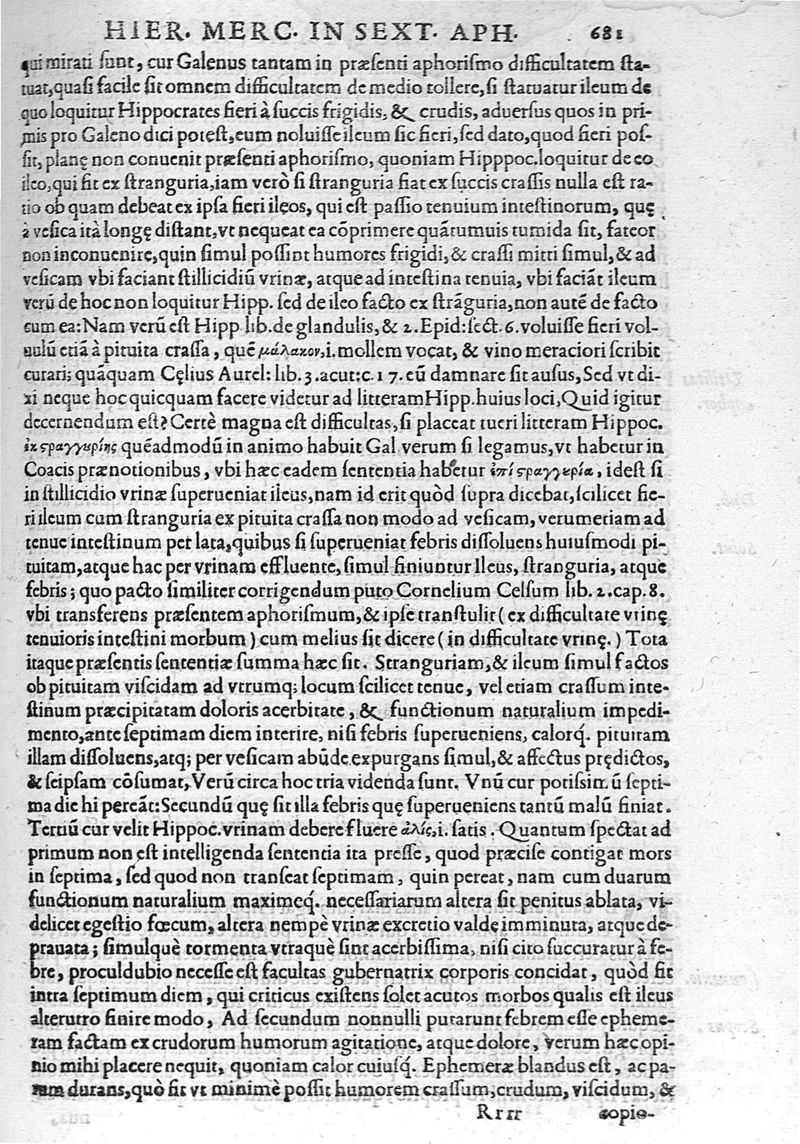 HIER. MERC. IN SEXT. APH. 681
qui mirati ſunt, cur Galenus tantam in præſenti aphoriſmo difficultatem ſta-
tuat, quaſi facile ſit omnem difficultatem de medio tollere, ſi ſtatuatur ileum de
quo loquitur Hippocrates fieri à ſuccis frigidis, & crudis, aduerſus quos in pri-
mis pro Galeno dici poteſt, eum noluiſſe ileum ſic fieri, ſed dato, quod fieri poſ-
ſit, planę non conuenit præſenti aphoriſmo, quoniam Hipppoc. loquitur de eo
ileo, qui fit ex ſtranguria, iam verò ſi ſtranguria fiat ex ſuccis craſſis nulla eſt ra-
tio ob quam debeat ex ipſa fieri ilęos, qui eſt paſſio tenuium inteſtinorum, quę
à veſica ità longę diſtant, vt nequeat ea cõprimere quãtumuis tumida ſit, fateor
non inconuenire, quin ſimul poſſint humores frigidi, & craſſi mitti ſimul, & ad
veſicam vbi faciant ſtillicidiũ vrinæ, atque ad inteſtina tenuia, vbi faciãt ileum
verũ de hoc non loquitur Hipp. ſed de ileo facto ex ſtrãguria, non autẽ de facto
cum ea: Nam verũ eſt Hipp lib. de glandulis, & 2. Epid: ſect. 6. voluiſſe fieri vol-
uulũ etiã à pituita craſſa, quẽ μάλακον, i. mollem vocat, & vino meraciori ſcribit
curari; quãquam Cęlius Aurel: lib. 3. acut: c. 17. eũ damnare ſit auſus, Sed vt di-
xi neque hoc quicquam facere videtur ad litteram Hipp. huius loci, Quid igitur
decernendum eſt? Certè magna eſt difficultas, ſi placeat tueri litteram Hippoc.
ἐκςραγγυρίης quẽadmodũ in animo habuit Gal verum ſi legamus, vt habetur in
Coacis prænotionibus, vbi hæc eadem ſententia habetur ἐπὶ ςραγγυρία, ideſt ſi
in ſtillicidio vrinæ ſuperueniat ileus, nam id erit quòd ſupra dicebat, ſcilicet fie-
ri ileum cum ſtranguria ex pituita craſſa non modo ad veſicam, verumetiam ad
tenue inteſtinum per lata, quibus ſi ſuperueniat febris diſſoluens huiuſmodi pi-
tuitam, atque hac per vrinam effluente, ſimul finiuntur Ileus, ſtranguria, atque
febris; quo pacto ſimiliter corrigendum puto Cornelium Celſum lib. 2. cap. 8.
vbi transferens præſentem aphoriſmum, & ipſe tranſtulit ( ex difficultate vrinę
tenuioris inteſtini morbum ) cum melius ſit dicere ( in difficultate vrinę. ) Tota
itaque præſentis ſententiæ ſumma hæc ſit. Stranguriam, & ileum ſimul factos
ob pituitam viſcidam ad vtrumq; locum ſcilicet tenue, vel etiam craſſum inte-
ſtinum præcipitatam doloris acerbitate, & functionum naturalium impedi-
mento, ante ſeptimam diem interire, niſi febris ſuperueniens, calorq́. pituitam
illam diſſoluens, atq; per veſicam abũde expurgans ſimul, & affectus prędictos,
& ſeipſam cõſumat, Verũ circa hoc tria videnda ſunt. Vnũ cur potiſſimũ ſepti-
ma die hi pereãt: Secundũ quę ſit illa febris quę ſuperueniens tantũ malũ finiat.
Tertiũ cur velit Hippoc. vrinam debere fluere ἁλίς, i. ſatis. Quantum ſpectat ad
primum non eſt intelligenda ſententia ita preſſe, quod præciſe contigat mors
in ſeptima, ſed quod non tranſeat ſeptimam, quin pereat, nam cum duarum
functionum naturalium maximeq́. neceſſariarum altera ſit penitus ablata, vi-
delicet egeſtio fœcum, altera nempè vrinæ excretio valdę imminuta, atque de-
prauata; ſimulquè tormenta vtraquè ſint acerbiſſima, niſi cito ſuccuratur à fe-
bre, proculdubio neceſſe eſt facultas gubernatrix corporis concidat, quòd fit
intra ſeptimum diem, qui criticus exiſtens ſolet acutos morbos qualis eſt ileus
alterutro finire modo, Ad ſecundum nonnulli putarunt febrem eſſe epheme-
ram factam ex crudorum humorum agitatione, atque dolore, verum hæc opi-
nio mihi placere nequit, quoniam calor cuiuſq́. Ephemeræ blandus eſt, ac pa-
rum durans, quò fit vt minimè poſſit humorem craſſum, crudum, viſcidum, &
Rrrr copio-